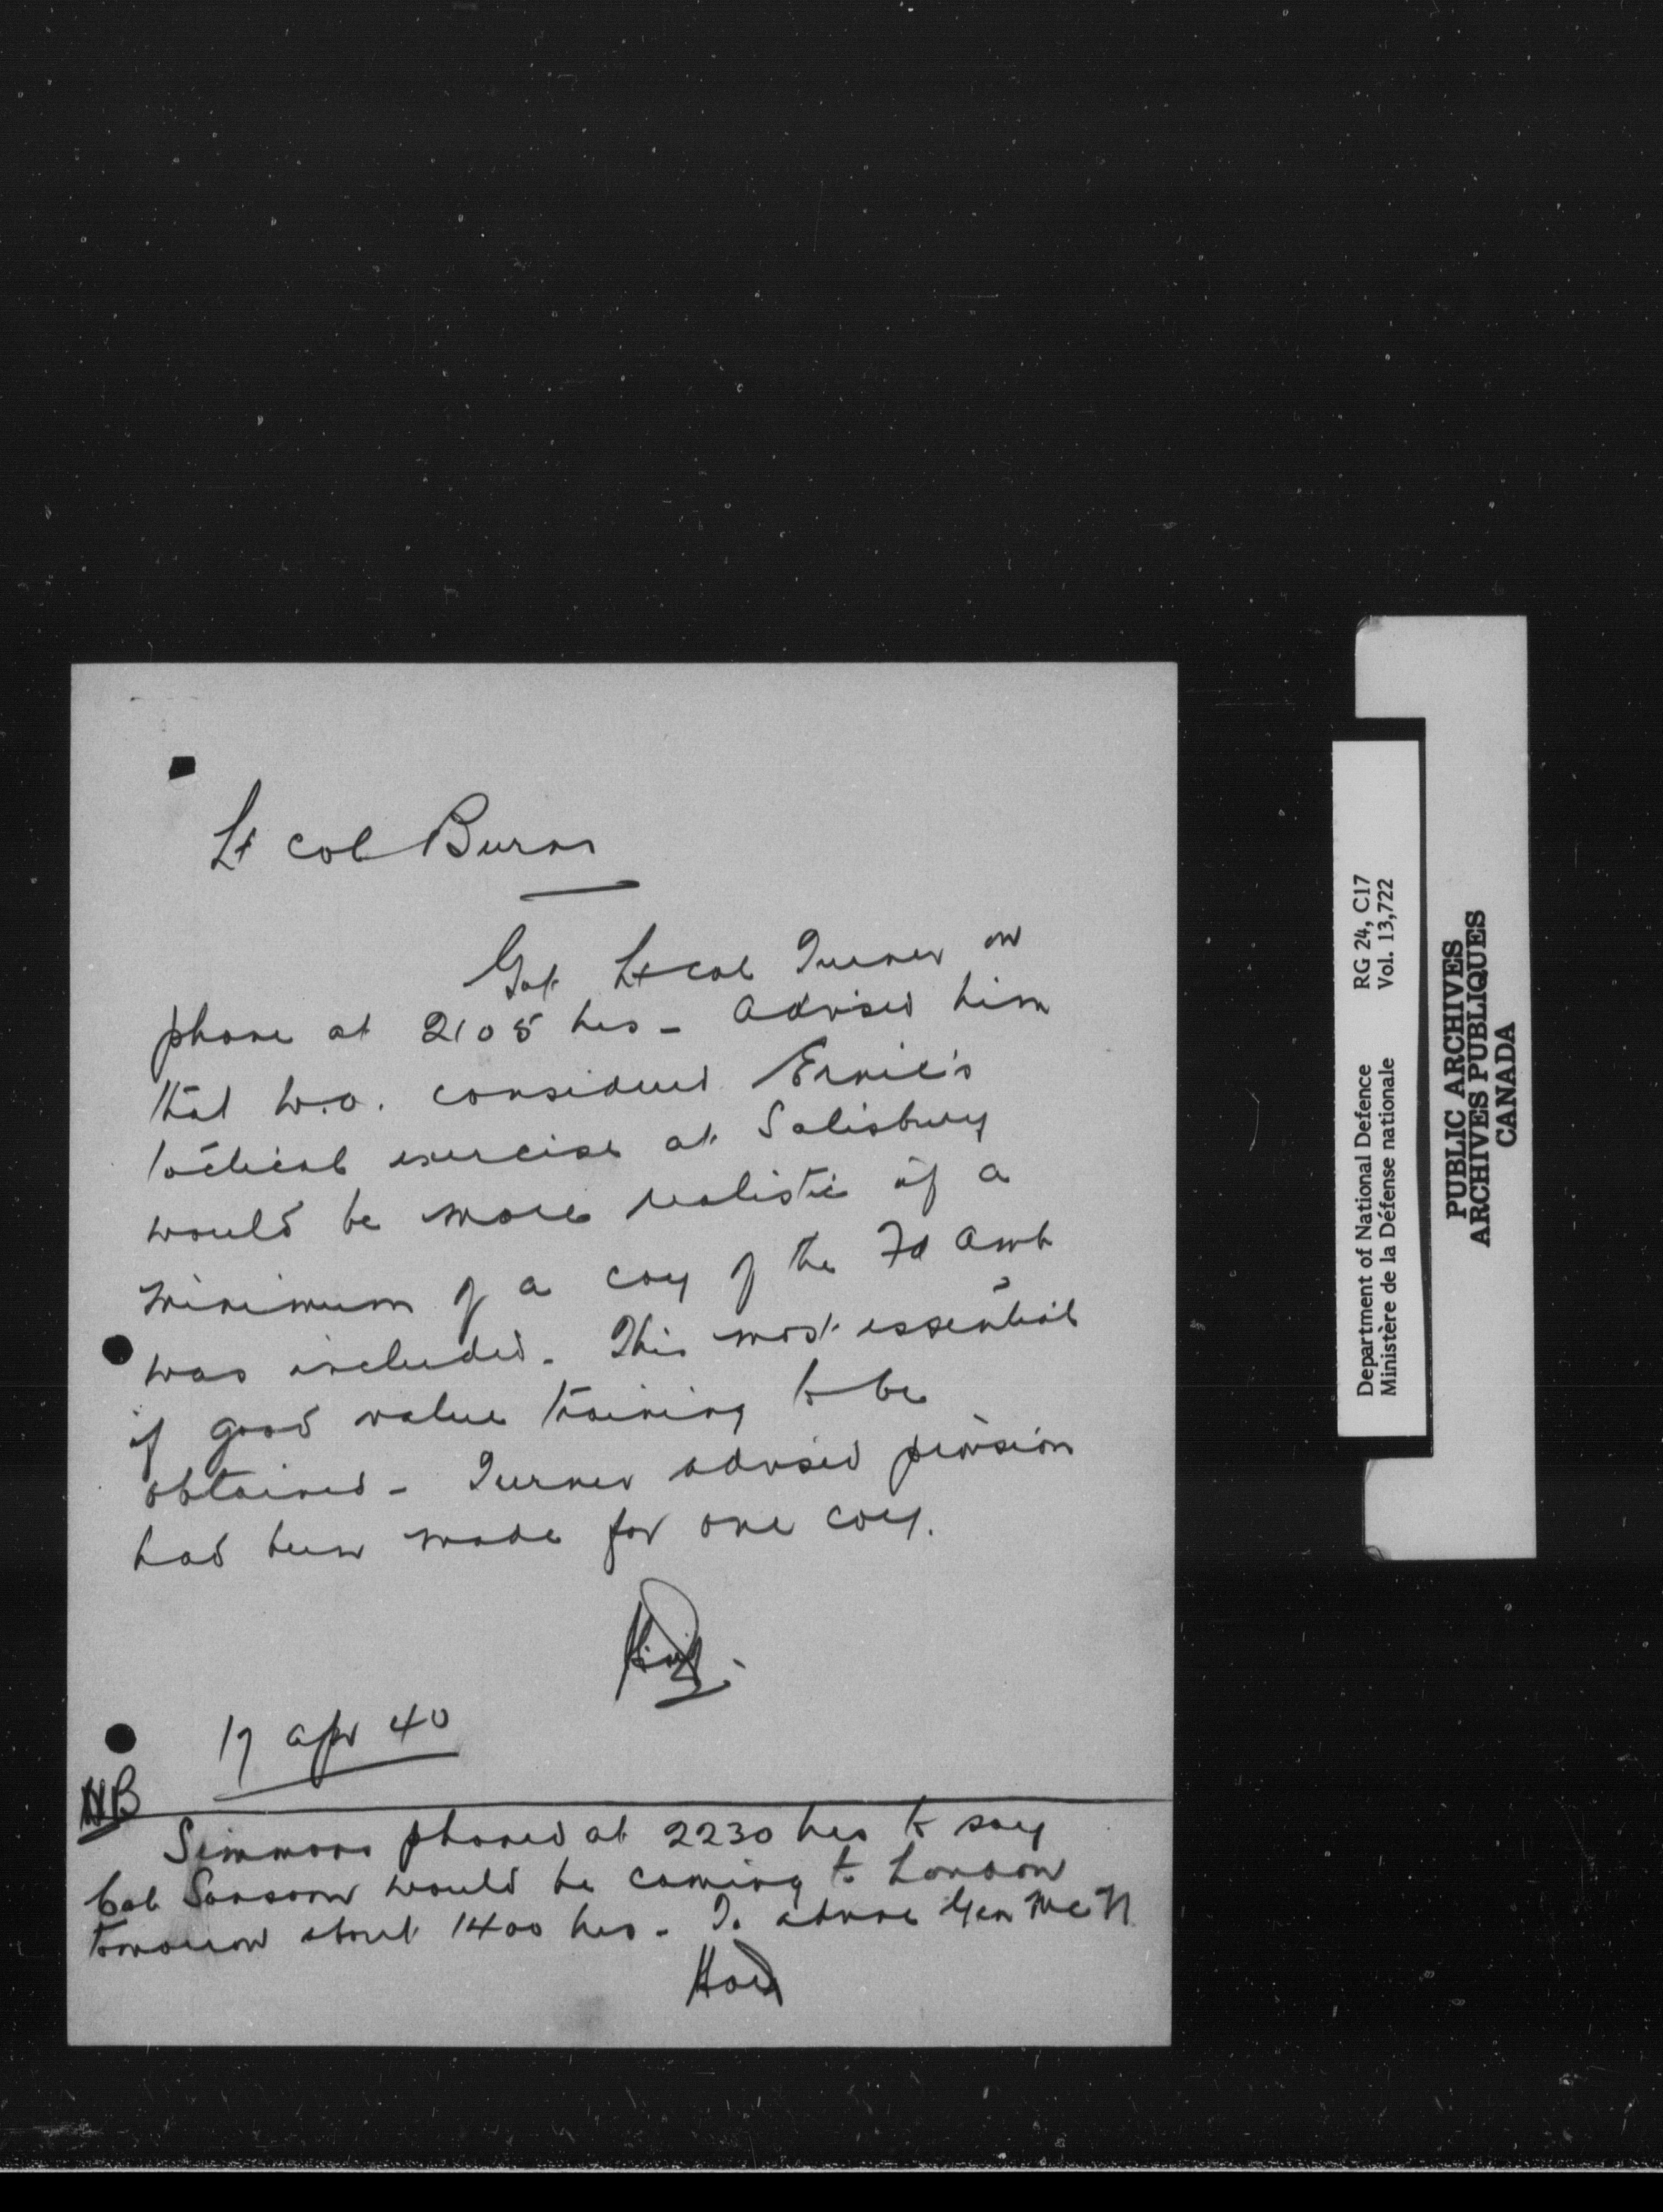 Lt Col Burns
Got Lt Col Turner on
phone at 2105 hrs - Advised him
that W.O. considered Ernie's
tactical exercise at Salisbury
would be more realistic if a
minimum of a coy of the Fd Amb
was included. This most essential
if good value training to be
obtained - Turner advised provision
had been made for one coy.
17 Apr 40
NB
Simmons phoned at 2230 hrs to say
Col Sansom would be coming to London
tomorrow about 1400 hrs. - To Gen McN
Department of National Defence RG 24, C17
Ministère de la Défense nationale Vol. 13,722
PUBLIC ARCHIVES
ARCHIVES PUBLIQUES
CANADA